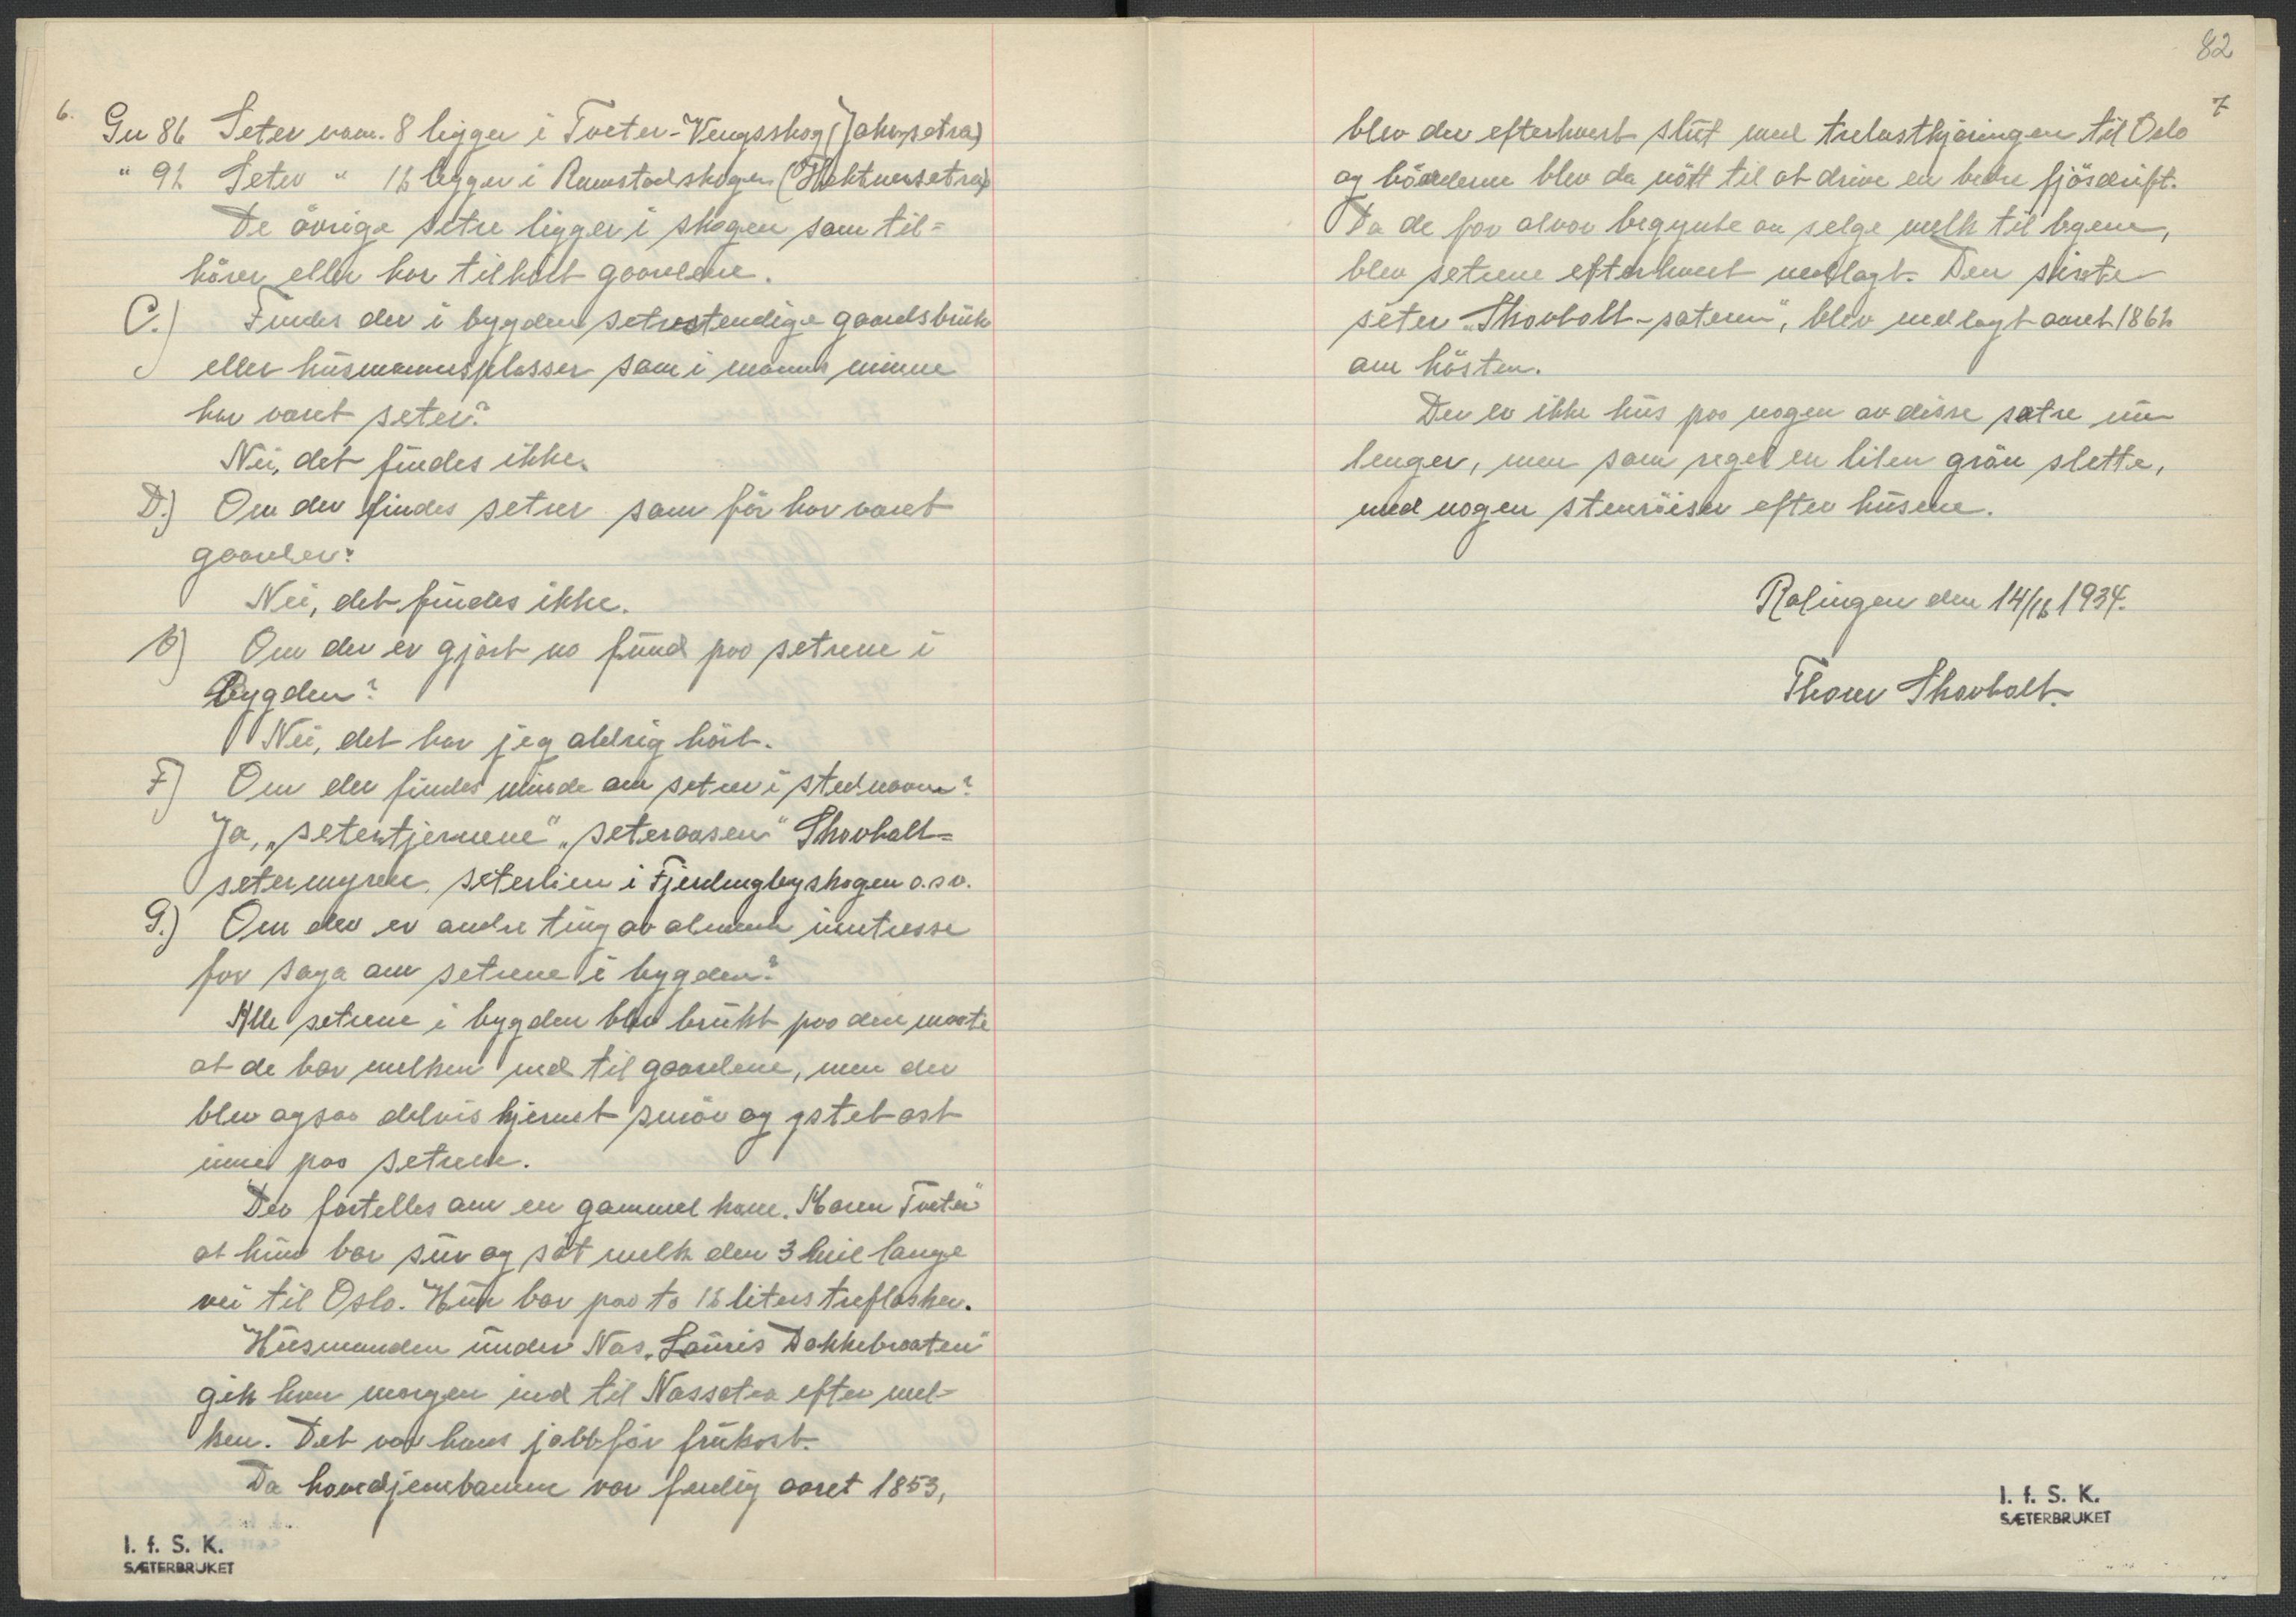 6.
Gn 86 Seter nam. 8 ligger i Tveter-Vengsskog (Jahrsetra)
" 92 Seter " 12 ligger i Ramstadskogen (Hektnersetra)
De övrige setre ligger i skogen som til=
hörer eller har tilhört gaardene.
C.) Findes der i bygden selvstendige gaardsbruk
eller husmannsplasser som i manns minne
har været seter?
Nei, det findes ikke.
D.) Om der findes setrer som för har været
gaarder?
Nei, det findes ikke.
E) Om der er gjort no fund paa setrene i
bygden?
Nei, det har jeg aldrig hört.
F) Om der findes minde om setrer i stednavn?
Ja, "setertjernene" "seteraasen" Skovholt=
setermyren, seterlien i Fjerdingbyskogen o.s.v.
G.) Om der er andre ting av almen inntresse
for saga om setrene i bygden?
Alle setrene i bygden blev brukt paa den maate
at de bar melken ned til gaardene, men der
blev ogsaa delvis kjernet smör og ystet ost
inne paa setrene.
Der fortelles om en gammel kone "Maren Tveter"
at hun bar sur og söt melk den 3 mil lange
vei til Oslo. Hun bar paa to 12 liters treflasker.
Husmanden under Næs, "Lauris Dakkebraaten"
gik hver morgen ind til Næssetra efter mel-
ken. Det var hans jobb för frukost.
Da hovedjernbanen var ferdig aaret 1853,
I. f. S. K.
SÆTERBRUKET
82
7
blev der efterhvert slut med trelastkjöringen til Oslo
og bönderne blev da nött til at drive en bedre fjösdrift.
Da de for alvor begynte aa selge melk til byene,
blev setrene efterhvert nedlagt. Den sirste
seter "Skovholt-sæteren", blev nedlagt aaret 1862
om hösten.
Der er ikke hus paa nogen av disse sætre nu
lenger, men som regel en liten grön slette,
med nogen stenröiser efter husene.
Rælingen den 14/12 1934.
Thorer Skovholt.
I. f. S. K.
SÆTERBRUKET